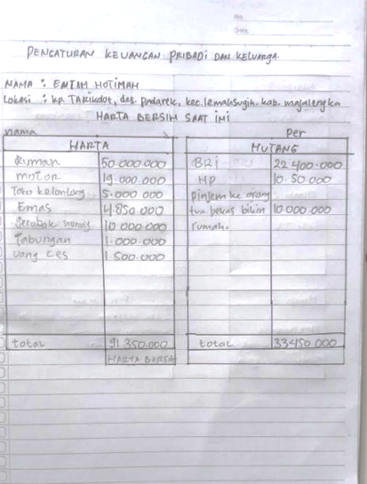 PENGATURAN KEUANGAN PRIBADI DAN KELUARGA.
NAMA : ENTIM HOTIMAH
Lokasi : kp. TARIKDOT, des. Padarek, kec. lemahsugih. kab. majalengka
HARTA BERSIH SAAT INI
nama Per
HARTA HUTANG
Rumah 50.000.000 BRI 22.400.000
motor 19.000.000 HP 10.50.000
Toko kelontong 5.000.000 pinjem ke orang
Emas 4.850.000 tua bekas bikin 10.000.000
Gerobak 10.000.000 rumah.
Tabungan 1.000.000
uang ces 1.500.000
total 91.350.000 total 33.450.000
HARTA BERSIH